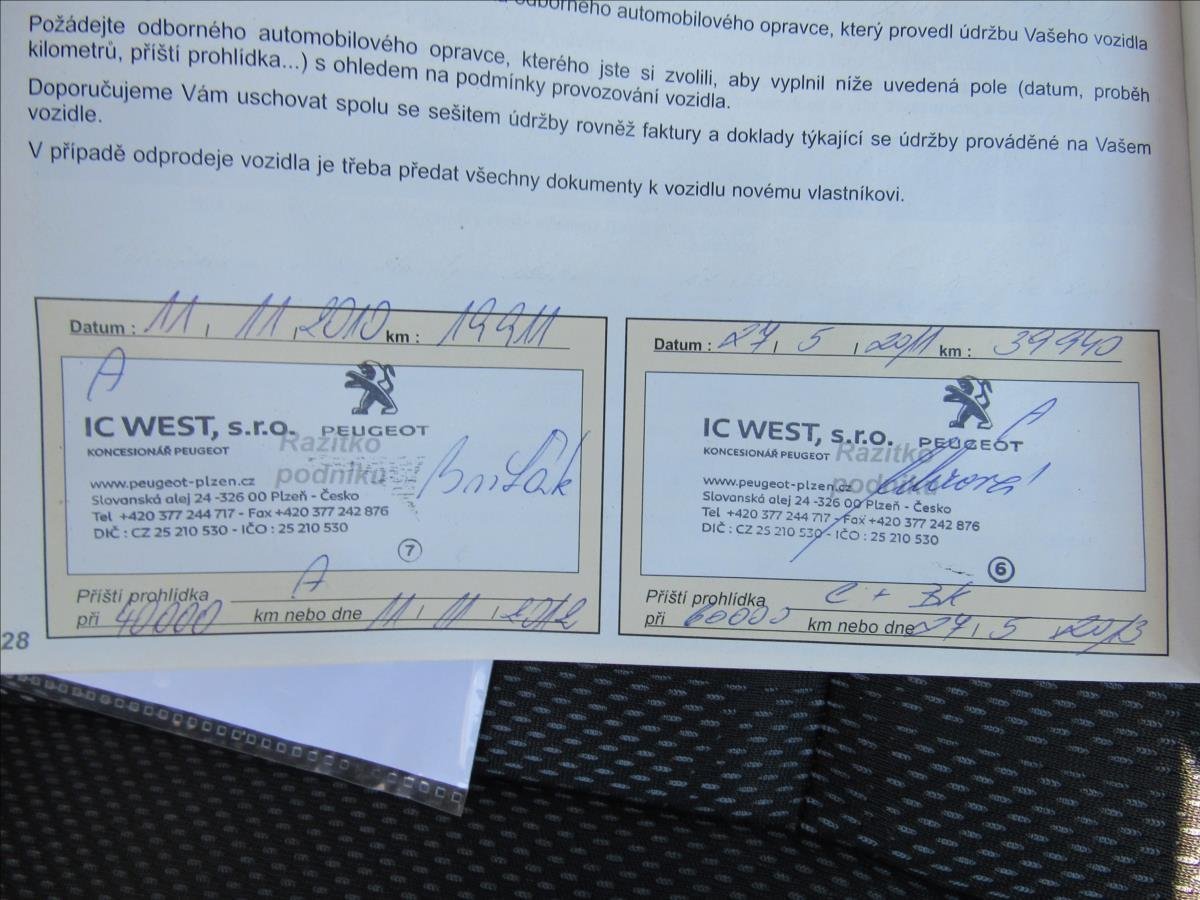 odborného automobilového opravce, který provedl údržbu Vašeho vozidla
Požádejte odborného automobilového opravce, kterého jste si zvolili, aby vyplnil níže uvedená pole (datum, proběh
kilometrů, příští prohlídka...) s ohledem na podmínky provozování vozidla.
Doporučujeme Vám uschovat spolu se sešitem údržby rovněž faktury a doklady týkající se údržby prováděné na Vašem
vozidle.
V případě odprodeje vozidla je třeba předat všechny dokumenty k vozidlu novému vlastníkovi.
Datum : 11 , 11 , 2010 km : 19911
A
IC WEST, s.r.o. PEUGEOT
KONCESIONÁŘ PEUGEOT
Razítko
podniku
www.peugeot-plzen.cz
Slovanská alej 24 -326 00 Plzeň - Česko
Tel +420 377 244 717 - Fax +420 377 242 876
DIČ : CZ 25 210 530 - IČO : 25 210 530
7
Příští prohlídka A
při 40000 km nebo dne 11 , 11 , 2012
Datum : 27 , 5 , 2011 km : 39940
IC WEST, s.r.o. PEUGEOT
KONCESIONÁŘ PEUGEOT
Razítko
podniku
www.peugeot-plzen.cz
Slovanská alej 24 -326 00 Plzeň - Česko
Tel +420 377 244 717 - Fax +420 377 242 876
DIČ : CZ 25 210 530 - IČO : 25 210 530
6
Příští prohlídka C + BK
při 60000 km nebo dne 27 , 5 2013
28